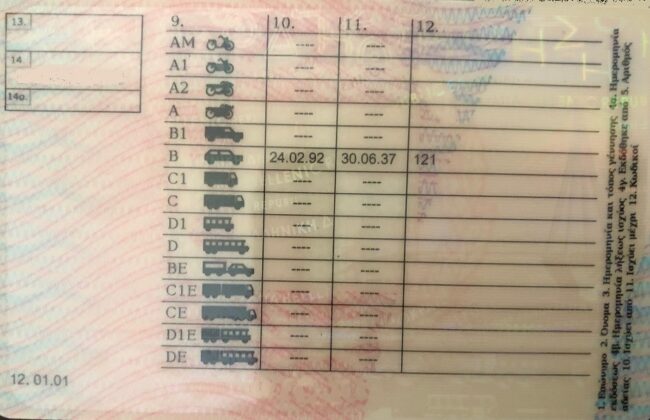 13.
14
14α.
9. 10. 11. 12.
AM ---- ----
A1 ---- ----
A2 ---- ----
A ---- ----
B1 ---- ----
B 24.02.92 30.06.37 121
C1 ---- ----
C ---- ----
D1 ---- ----
D ---- ----
BE ---- ----
C1E ---- ----
CE ---- ----
D1E ---- ----
DE ---- ----
12. 01.01
1. Επώνυμο 2. Όνομα 3. Ημερομηνία και τόπος γέννησης 4α. Ημερομηνία
εκδόσεως 4β. Ημερομηνία λήξεως ισχύος 4γ. Εκδόθηκε από 5. Αριθμός
αδείας 10. Ισχύει από 11. Ισχύει μέχρι 12. Κωδικοί